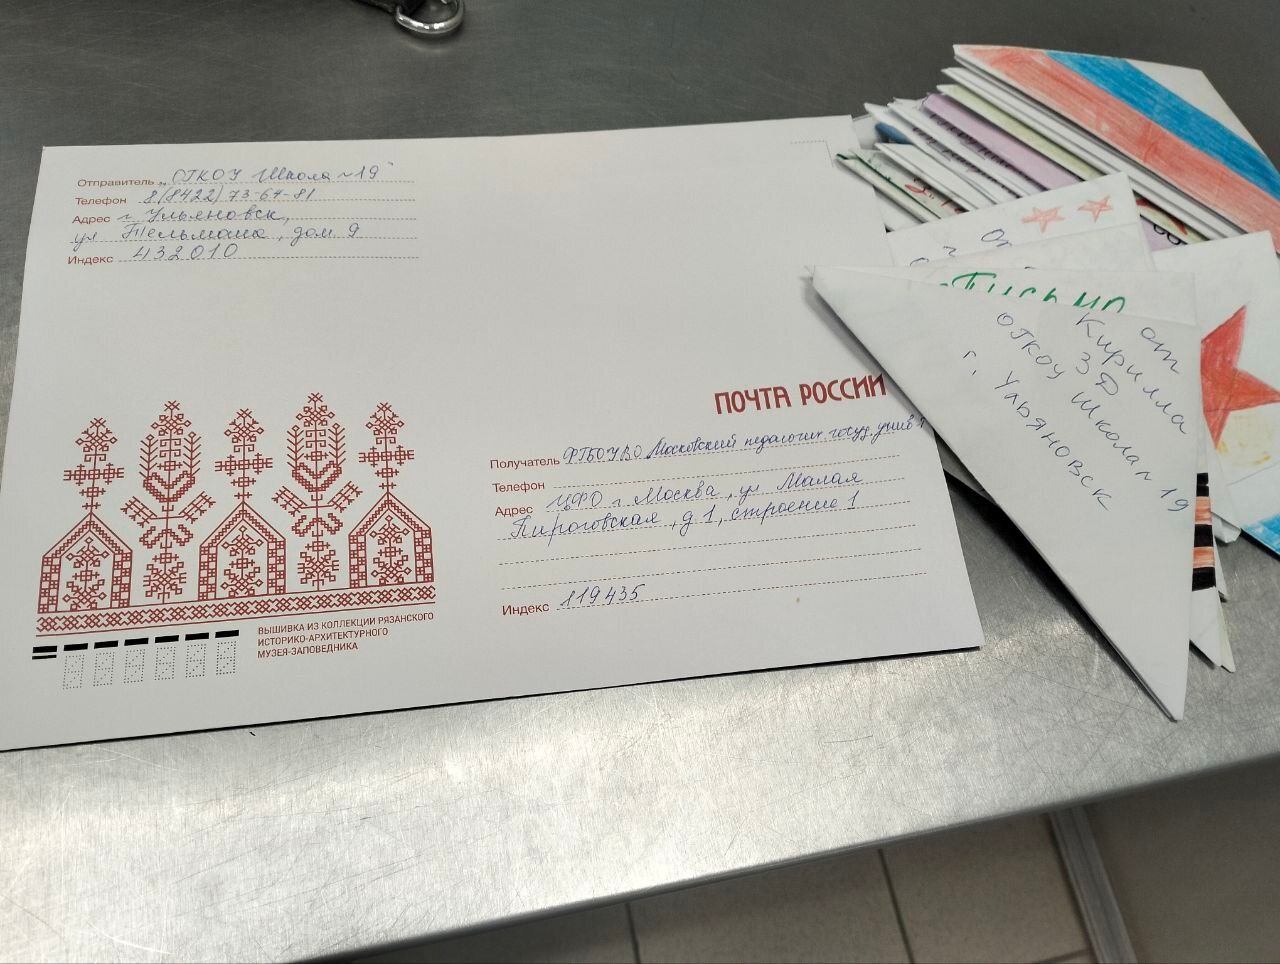 Отправитель „ОГКОУ Школа №19"
Телефон 8(8422)73-64-81
Адрес г. Ульяновск,
ул Тельмана, дом 9
Индекс 432010
ПОЧТА РОССИИ
Получатель ФГБОУ ВО Московский педагогич. госуд. унив-т
Телефон
Адрес ЦФО г. Москва, ул Малая
Пироговская, д 1, строение 1
Индекс 119435
ВЫШИВКА ИЗ КОЛЛЕКЦИИ РЯЗАНСКОГО
ИСТОРИКО-АРХИТЕКТУРНОГО
МУЗЕЯ-ЗАПОВЕДНИКА
От
Письмо
от
Кирилла
3Д
ОГКОУ Школа №19
г. Ульяновск